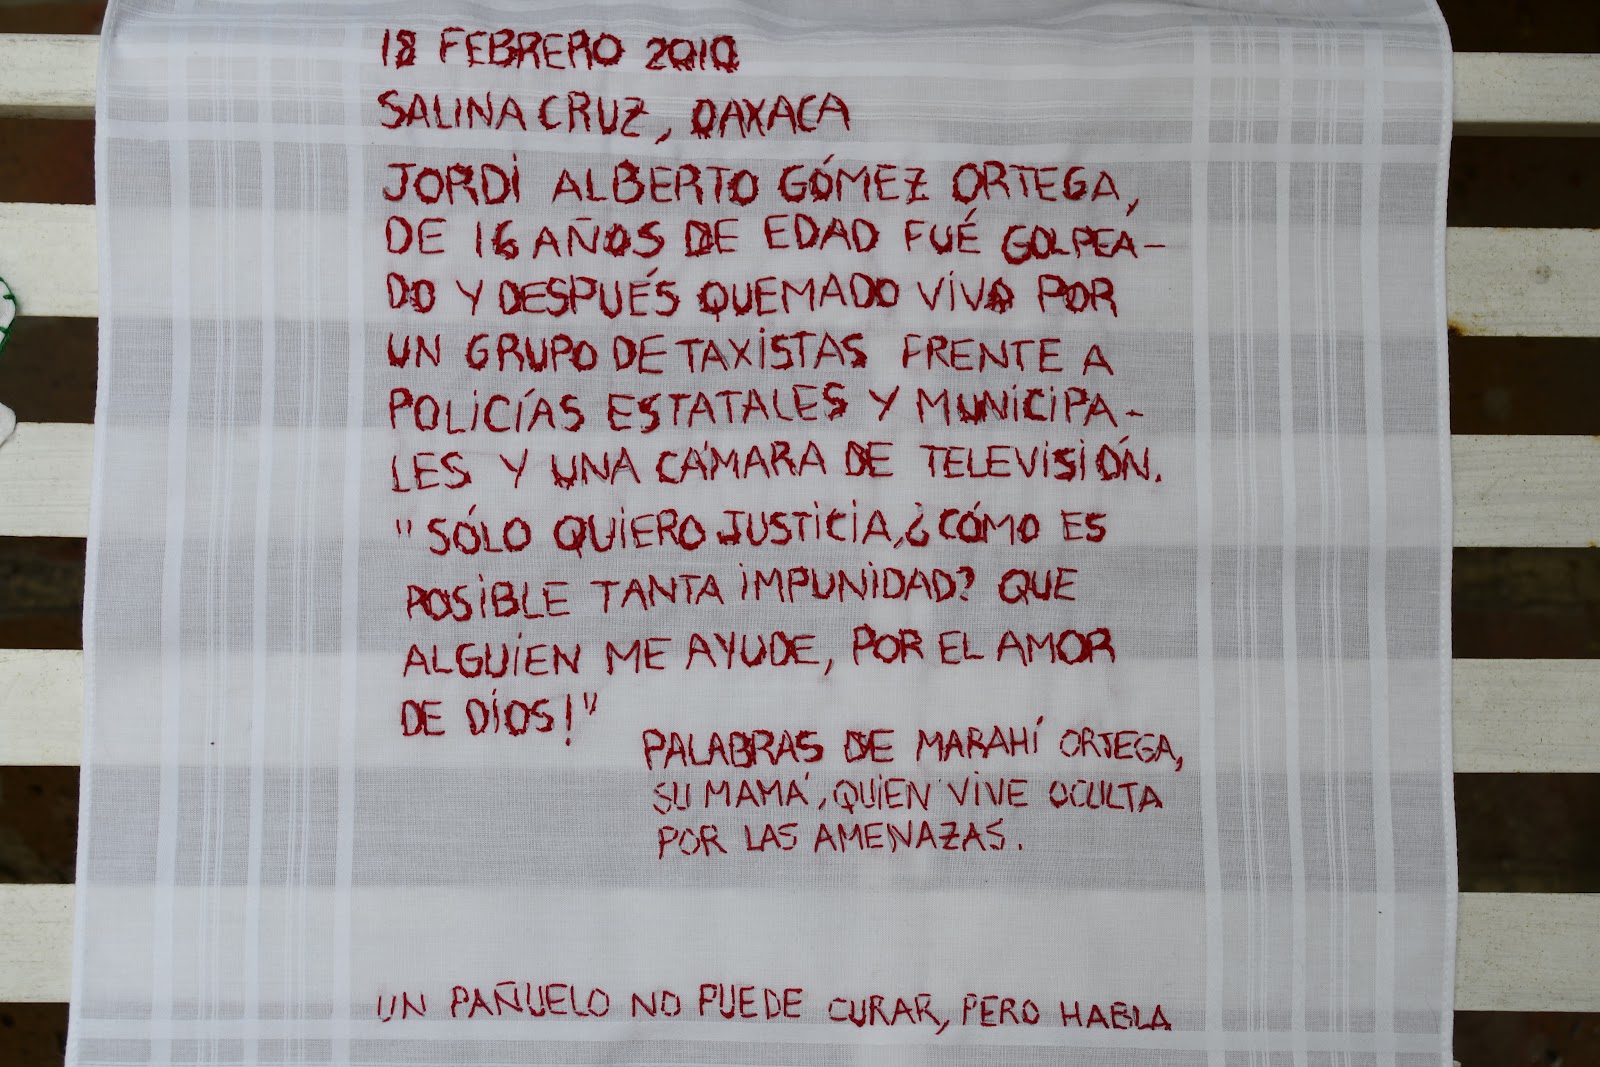 18 FEBRERO 2010
SALINA CRUZ, OAXACA
JORDI ALBERTO GÓMEZ ORTEGA,
DE 16 AÑOS DE EDAD FUÉ GOLPEA-
DO Y DESPUÉS QUEMADO VIVO POR
UN GRUPO DE TAXISTAS FRENTE A
POLICÍAS ESTATALES Y MUNICIPA-
LES Y UNA CÁMARA DE TELEVISIÓN.
"SÓLO QUIERO JUSTICIA,¿CÓMO ES
POSIBLE TANTA IMPUNIDAD? QUE
ALGUIEN ME AYUDE, POR EL AMOR
DE DÍOS!"
PALABRAS DE MARAHÍ ORTEGA,
SU MAMÁ, QUIEN VIVE OCULTA
POR LAS AMENAZAS.
UN PAÑUELO NO PUEDE CURAR, PERO HABLA